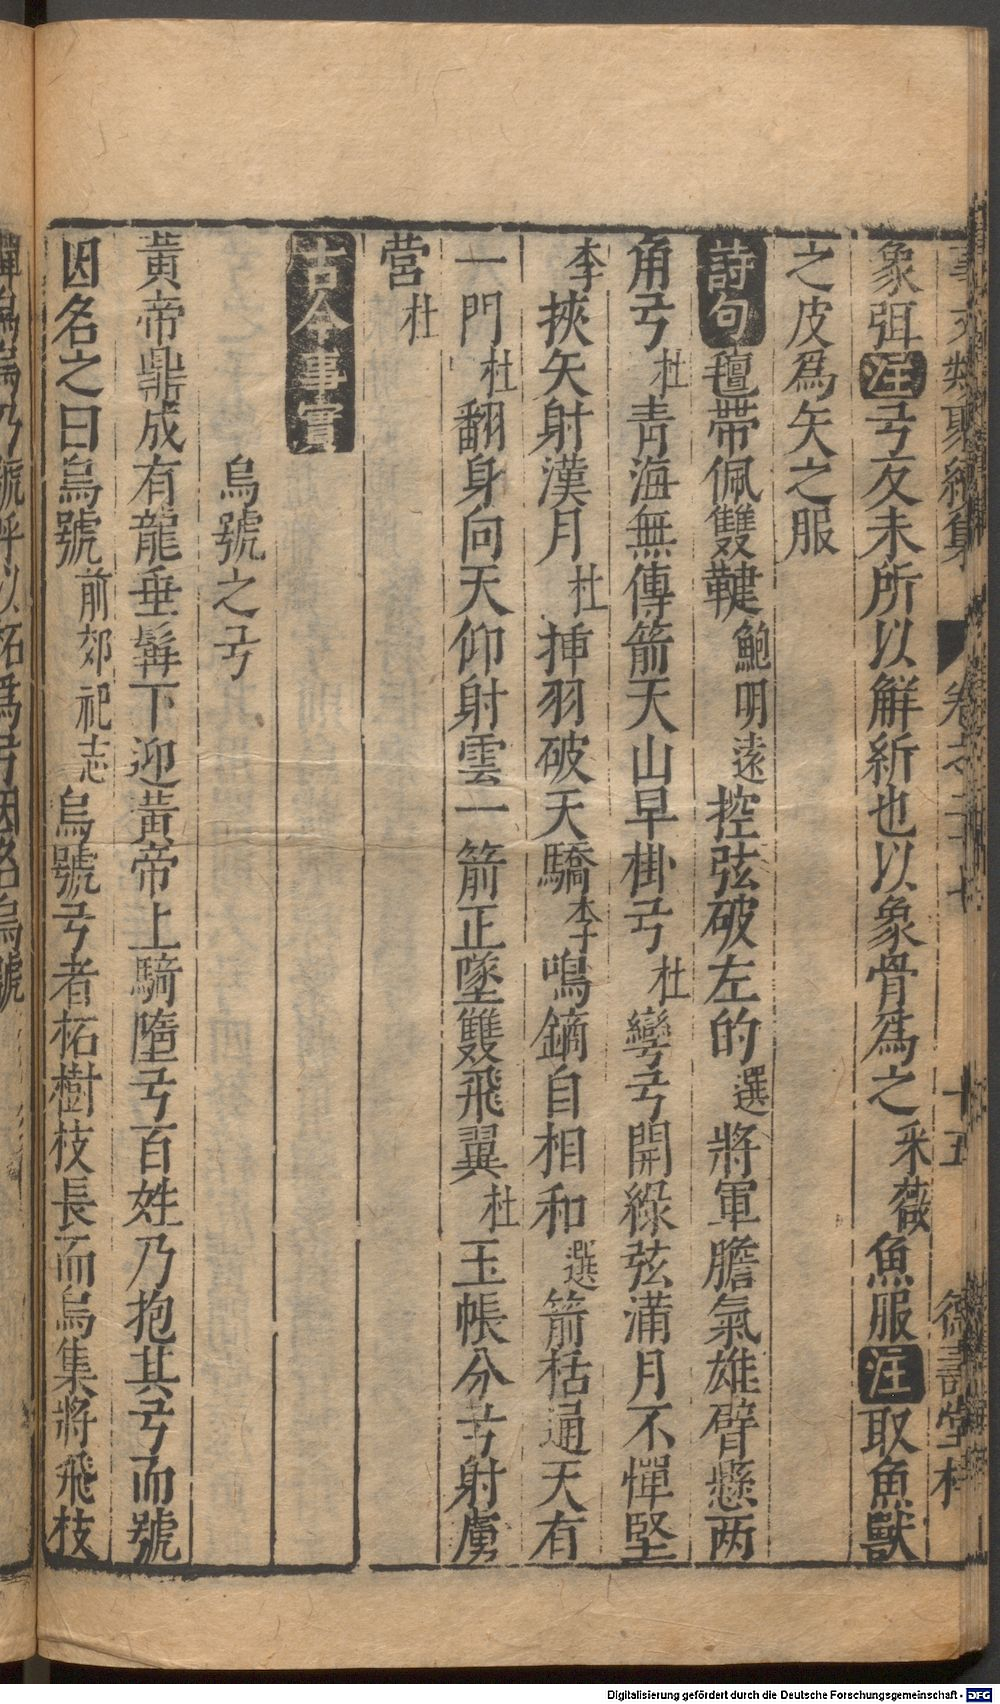 事文類聚續集 卷之二十七 十五 德壽堂梓
象弭注弓反末所以解紒也以象骨爲之采薇魚服注取魚獸
之皮爲矢之服
詩句氊帶佩雙鞬鮑明遠控弦破左的選將軍膽氣雄臂懸两
角弓杜青海無傳箭天山早掛弓杜彎弓開綠弦滿月不憚堅
李挾矢射漢月杜揷羽破天驕李鳴鏑自相和選箭栝通天有
一門杜翻身向天仰射雲一箭正墜雙飛翼杜玉帳分弓射虜
營杜
古今事實
烏號之弓
黃帝鼎成有龍垂髯下迎黃帝上騎墮弓百姓乃抱其弓而號
因名之曰烏號前郊祀志烏號弓者柘樹枝長而烏集將飛枝
乃號呼以柘爲弓因名烏號
Digitalisierung gefördert durch die Deutsche Forschungsgemeinschaft - DFG